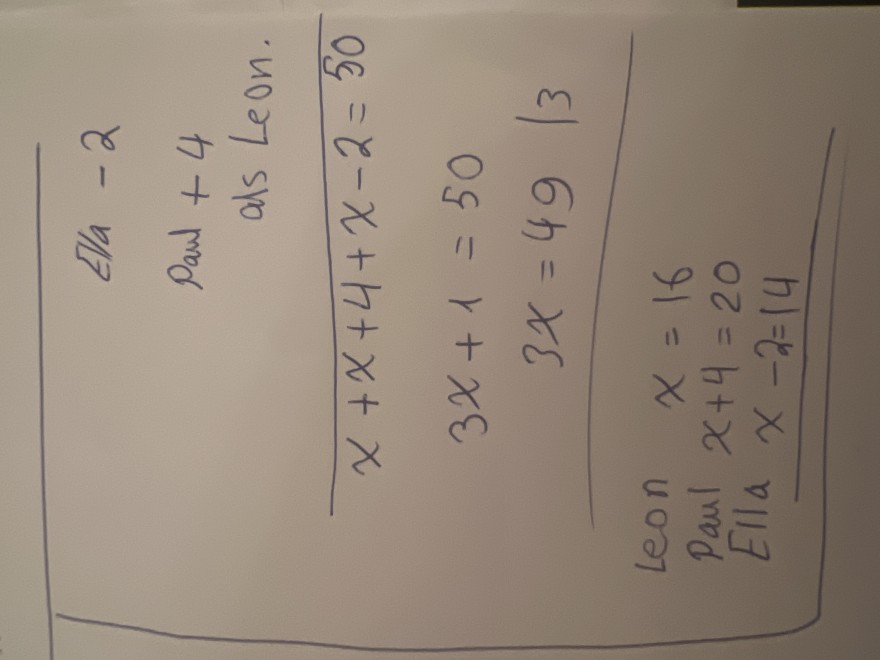 Ella - 2
Paul + 4
als Leon.
x + x + 4 + x - 2 = 50
3x + 1 = 50
3x = 49 |3
Leon x = 16
Paul x+4 = 20
Ella x - 2 = 14